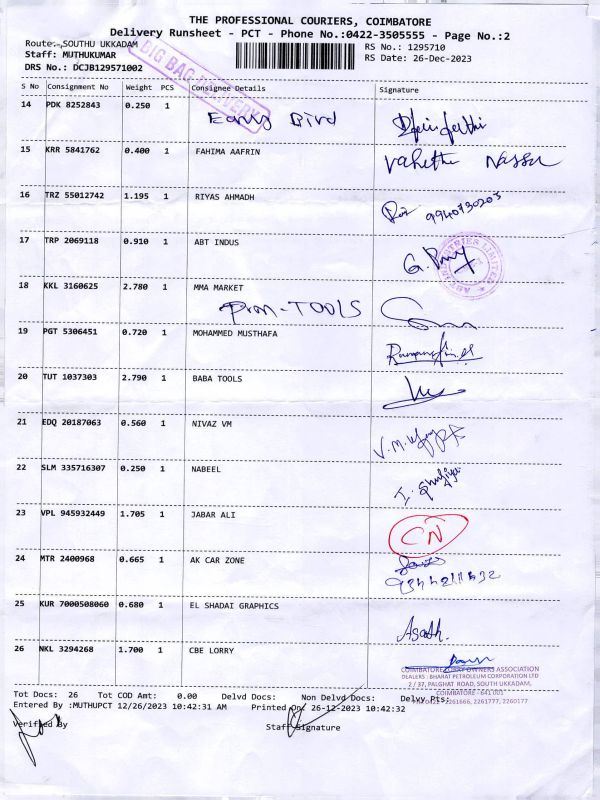 THE PROFESSIONAL COURIERS, COIMBATORE
Delivery Runsheet - PCT - Phone No.:0422-3505555 - Page No.:2
Route:-,SOUTHU UKKADAM
Staff: MUTHUKUMAR
DRS No.: DCJB129571002
RS No.: 1295710
RS Date: 26-Dec-2023
DIG BAG DELIVERY
S No Consignment No Weight PCS Consignee Details Signature
14 PDK 8252843 0.250 1 Early Bird
15 KRR 5841762 0.400 1 FAHIMA AAFRIN
16 TRZ 55012742 1.195 1 RIYAS AHMADH 9940730203
17 TRP 2069118 0.910 1 ABT INDUS
18 KKL 3160625 2.780 1 MMA MARKET
Prom-TOOLS
19 PGT 5306451 0.720 1 MOHAMMED MUSTHAFA
20 TUT 1037303 2.790 1 BABA TOOLS
21 EDQ 20187063 0.560 1 NIVAZ VM
22 SLM 335716307 0.250 1 NABEEL
23 VPL 945932449 1.705 1 JABAR ALI CN
24 MTR 2400968 0.665 1 AK CAR ZONE
25 KUR 7000508060 0.680 1 EL SHADAI GRAPHICS Asath.
26 NKL 3294268 1.700 1 CBE LORRY
OWNERS ASSOCIATION
DEALERS : BHARAT PETROLEUM CORPORATION LTD
2 / 37, PALGHAT ROAD, SOUTH UKKADAM,
COIMBATORE - 641 001
2261666, 2261777, 2260177
Tot Docs: 26 Tot COD Amt: 0.00 Delvd Docs: Non Delvd Docs: Delvy Pts:
Entered By :MUTHUPCT 12/26/2023 10:42:31 AM Printed On: 26-12-2023 10:42:32
Verified By Staff Signature